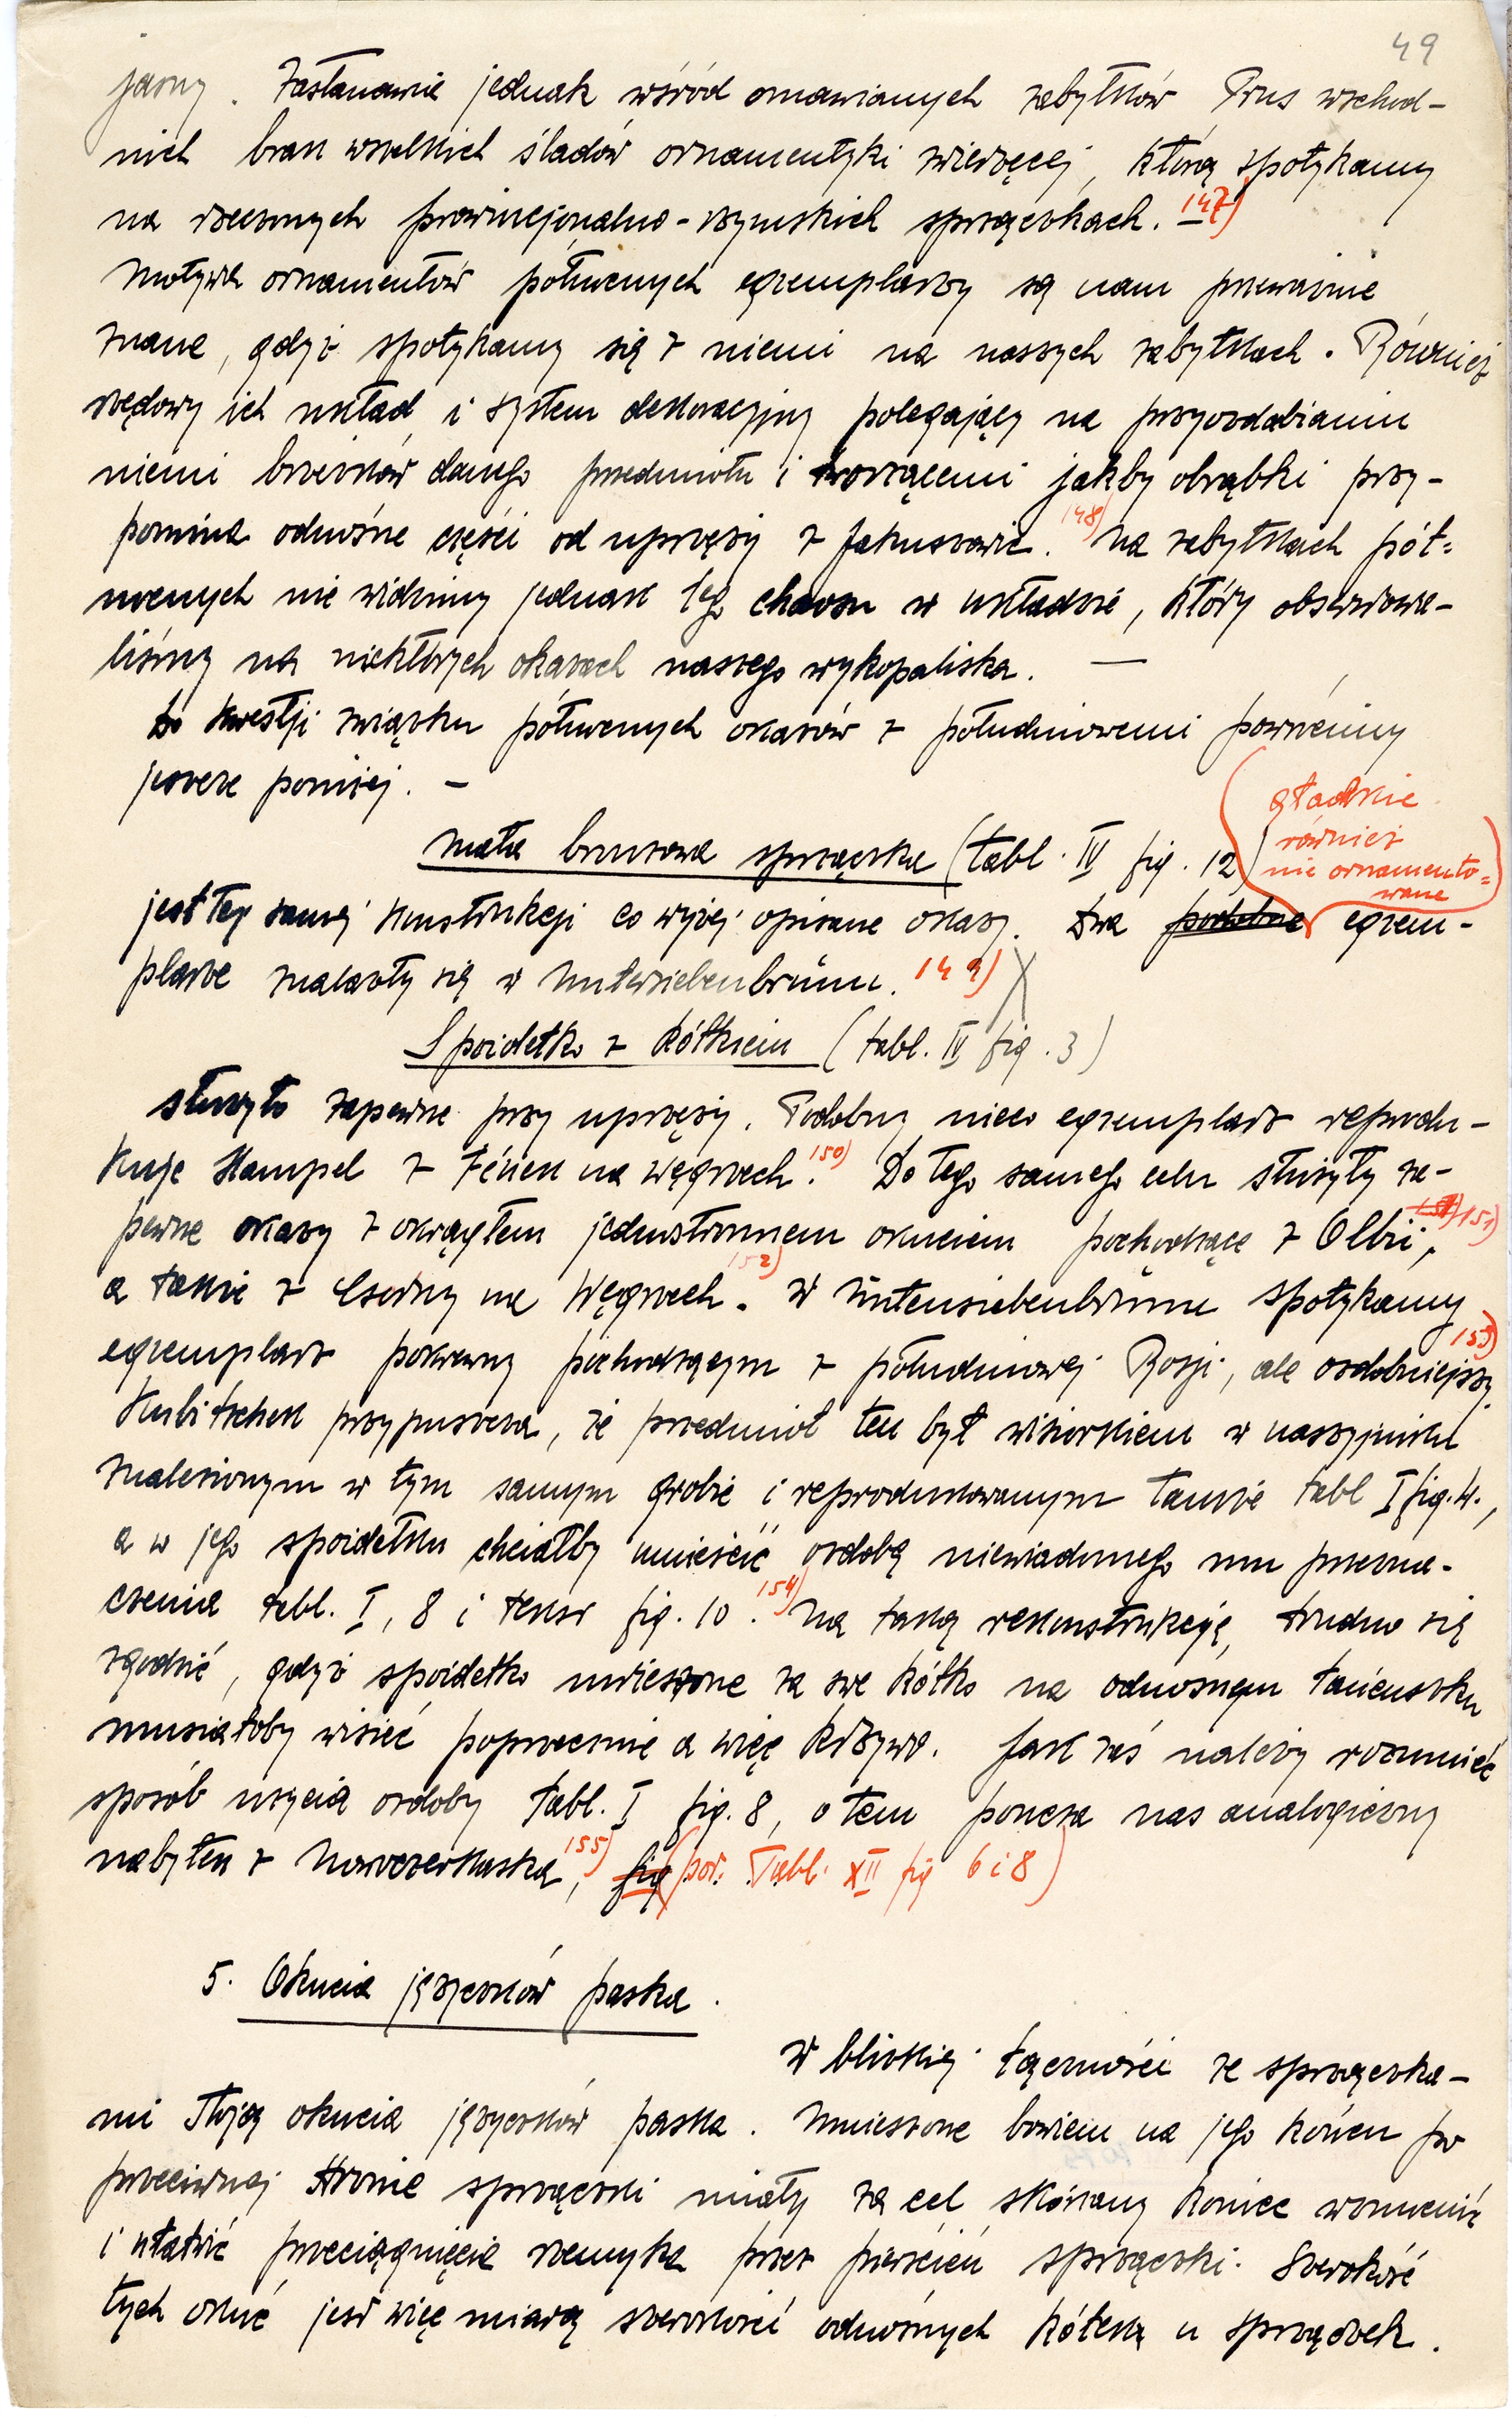 49
jasny. Zastanawia jednak wśród omawianych zabytków Prus wschod-
nich brak wszelkich śladów ornamentyki zwierzęcej, którą spotykamy
na rzeczonych prowincjonalno-rzymskich sprzączkach. 147)
Motywa ornamentów północnych egzemplarzy są nam przeważnie
znane, gdyż spotykamy się z niemi na naszych zabytkach. Również
rzędowy ich układ i system dekoracyjny polegający na przyozdabianiu
niemi brzesków danego przedmiotu i tworzącemi jakby obrąbki przy-
pomina odnośne części od uprzęży z Jakuszowic. 148) Na zabytkach pół-
nocnych nie widzimy jednak tego chaosu w układzie, który obserwowa-
liśmy na niektórych okazach naszego wykopaliska. —
Do kwestji związku północnych okazów z południowemi powrócimy
jeszcze poniżej. —
Mała bronzowa sprzączka (tabl. IV fig. 12)
gładkie
również
nie ornamento=
wane
jest tej samej konstrukcji co wyżej opisane okazy. Dwa podobne egzem-
plarze znalazły się w Untersiebenbrunn. 149)
Spoidełko z kółkiem (tabl. IV fig. 3)
służyło zapewne przy uprzęży. Podobny nieco egzemplarz reprodu-
kuje Hampel z Fének na Węgrzech. 150) Do tego samego celu służyły za-
pewne okazy z okrągłem jednostronnem okuciem pochodzące z Olbii, 151)
a także z Csorny na Węgrzech. 152) W Untersiebenbrunn spotykamy
egzemplarz pokrewny pochodzącym z południowej Rosji, ale ozdobniejszy. 153)
Kubitschek przypuszcza, że przedmiot ten był wisiorkiem w naszyjniku
znalezionym w tym samym grobie i reprodukowanym tamże tabl I fig. 4.,
a w jego spoidełku chciałby umieścić ozdobę niewiadomego mu przezna-
czenia tabl. I, 8 i tekst fig. 10. 154) Na taką rekonstrukcję, trudno się
zgodzić, gdyż spoidełko umieszczone za swe kółko na odnośnym łańcuszku
musiałoby wisieć poprzecznie a więc krzywo. Jak zaś należy rozumieć
sposób użycia ozdoby tabl. I fig. 8, o tem poucza nas analogiczny
nabytek z Nowoczerkaska, 155) fig (por. Tabl. XII fig 6 i 8)
5. Okucia języczków paska.
W bliskiej łączności ze sprzączka-
mi stoją okucia języczków paska. Umieszczone bowiem na jego końcu po
przeciwnej stronie sprzączki miały za cel skórzany koniec wzmocnić
i ułatwić przeciągnięcie rzemyka przez pierścień sprzączki. Szerokość
tych okuć jest więc miarą szerokości odnośnych kółek u sprzączek.